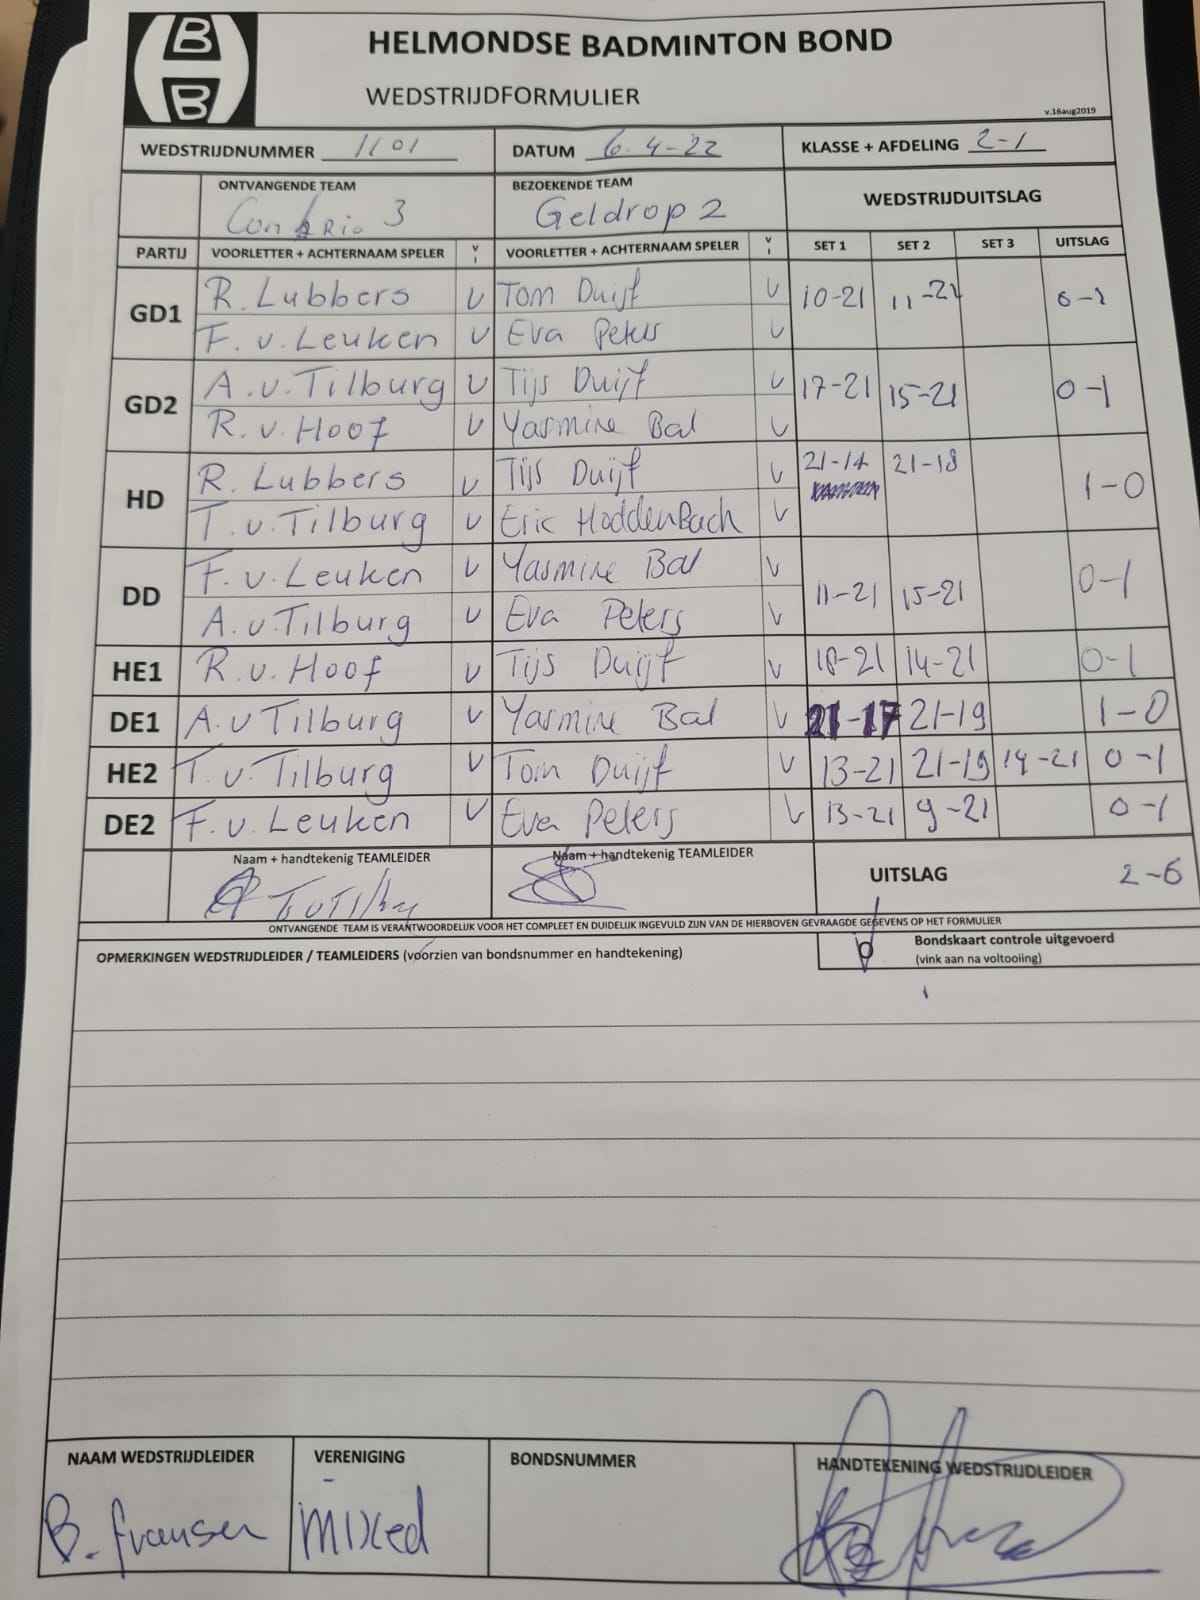 B
B
HELMONDSE BADMINTON BOND
WEDSTRIJDFORMULIER
v.16aug2019
WEDSTRIJDNUMMER 1101 DATUM 6-4-22 KLASSE + AFDELING 2-1
ONTVANGENDE TEAM BEZOEKENDE TEAM WEDSTRIJDUITSLAG
Con Brio 3 Geldrop 2
PARTIJ VOORLETTER + ACHTERNAAM SPELER V I VOORLETTER + ACHTERNAAM SPELER V I SET 1 SET 2 SET 3 UITSLAG
GD1 R. Lubbers V Tom Duijf V 10-21 11-21 0-1
F. v. Leuken V Eva Peters V
GD2 A. v. Tilburg V Tijs Duijf V 17-21 15-21 0-1
R. v. Hoof V Yasmine Bal V
HD R. Lubbers V Tijs Duijf V 21-14 21-18 1-0
T. v. Tilburg V Eric Hoddenbach V
DD F. v. Leuken V Yasmine Bal V 11-21 15-21 0-1
A. v. Tilburg V Eva Peters V
HE1 R. v. Hoof V Tijs Duijf V 18-21 14-21 0-1
DE1 A. v Tilburg V Yasmine Bal V 21-17 21-19 1-0
HE2 T. v. Tilburg V Tom Duijf V 13-21 21-19 14-21 0-1
DE2 F. v. Leuken V Eva Peters V 13-21 9-21 0-1
Naam + handtekenig TEAMLEIDER Naam + handtekenig TEAMLEIDER UITSLAG 2-6
ONTVANGENDE TEAM IS VERANTWOORDELIJK VOOR HET COMPLEET EN DUIDELIJK INGEVULD ZIJN VAN DE HIERBOVEN GEVRAAGDE GEGEVENS OP HET FORMULIER
OPMERKINGEN WEDSTRIJDLEIDER / TEAMLEIDERS (voorzien van bondsnummer en handtekening) Bondskaart controle uitgevoerd
(vink aan na voltooiing)
NAAM WEDSTRIJDLEIDER VERENIGING BONDSNUMMER HANDTEKENING WEDSTRIJDLEIDER
B. fransen mixed